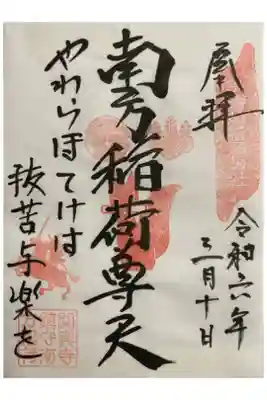 奉拝
令和六年
三月十日
南方稲荷尊天
やわらほてけは
抜苦与楽を